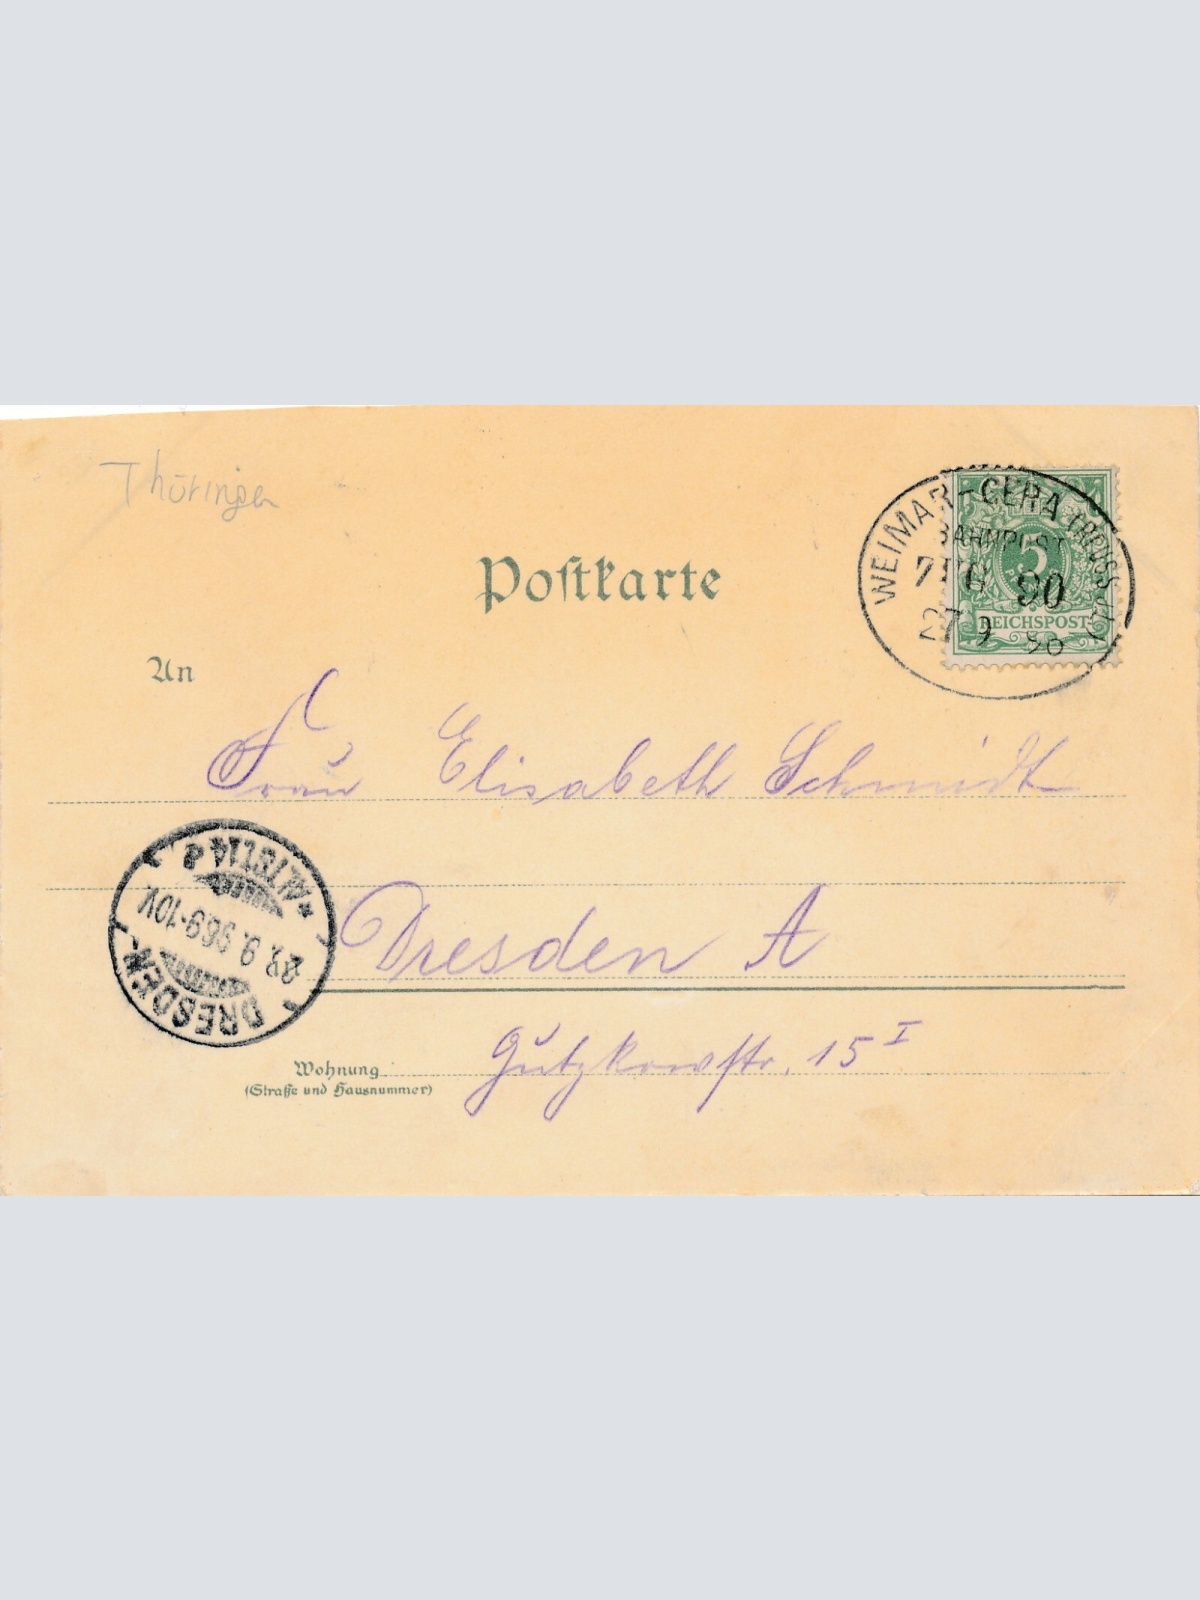 Thüringen
WEIMAR-GERA (REUSS
BAHNPOST
ZUG 90
27 9 96
5
REICHSPOST
Postkarte
An
Frau Elisabeth Schmidt
DRESDEN
9.96 9-10V.
Dresden A
Wohnung
(Straße und Hausnummer)
Gutzkowstr. 15 I